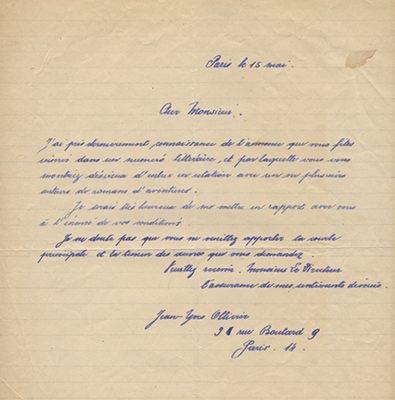 Paris le 15 mai.
Cher Monsieur.
J'ai pris dernièrement, connaissance de l'annonce que vous fites
insérer dans un littéraire, et par laquelle vous vous
montriez désireux d'entrer en relation avec un ou plusieurs
auteurs de romans d'aventures.
Je serais très heureux de me mettre en rapport avec vous
à l'énoncé de vos conditions.
Je ne doute pas que vous ne veuillez apporter la
principale et la teneur des œuvres que vous demandez.
Veuillez recevoir. Monsieur Le Directeur
l'assurance de mes sentiments dévoués.
Jean-Yves Ollivier
rue Boulard 9
Paris. 14.